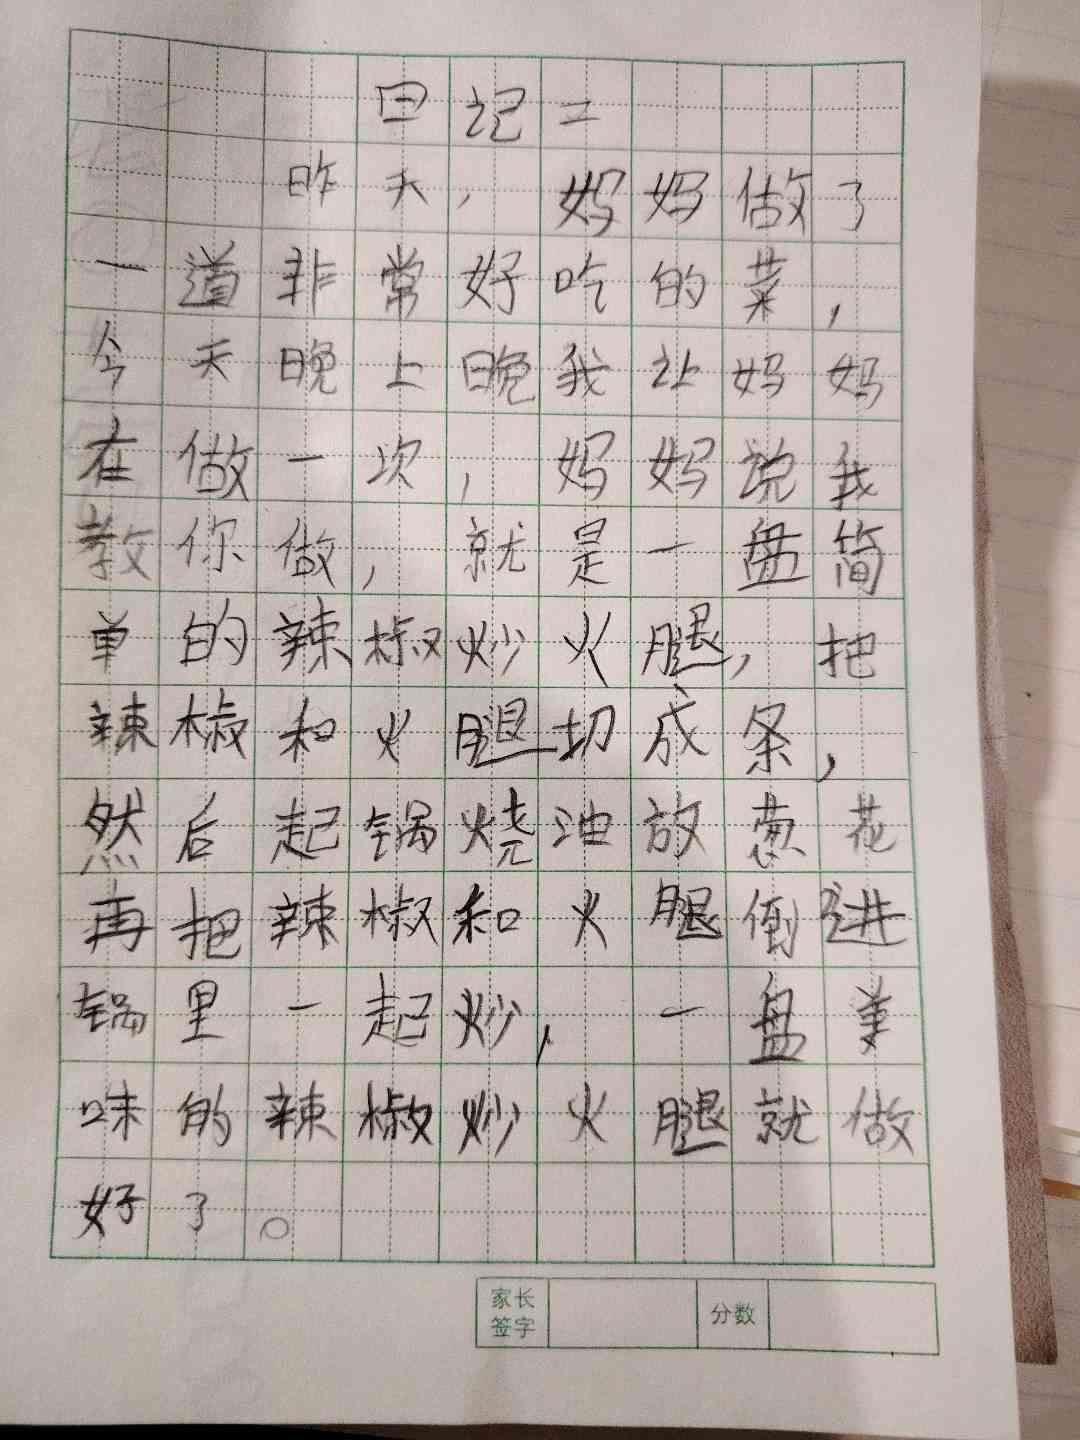 日记二
昨天，妈妈做了
一道非常好吃的菜，
今天晚上晚我让妈妈
在做一次，妈妈说我
教你做，就是一盘简
单的辣椒炒火腿，把
辣椒和火腿切成条，
然后起锅烧油放葱花
再把辣椒和火腿倒进
锅里一起炒，一盘美
味的辣椒炒火腿就做
好了。
家长
签字
分数